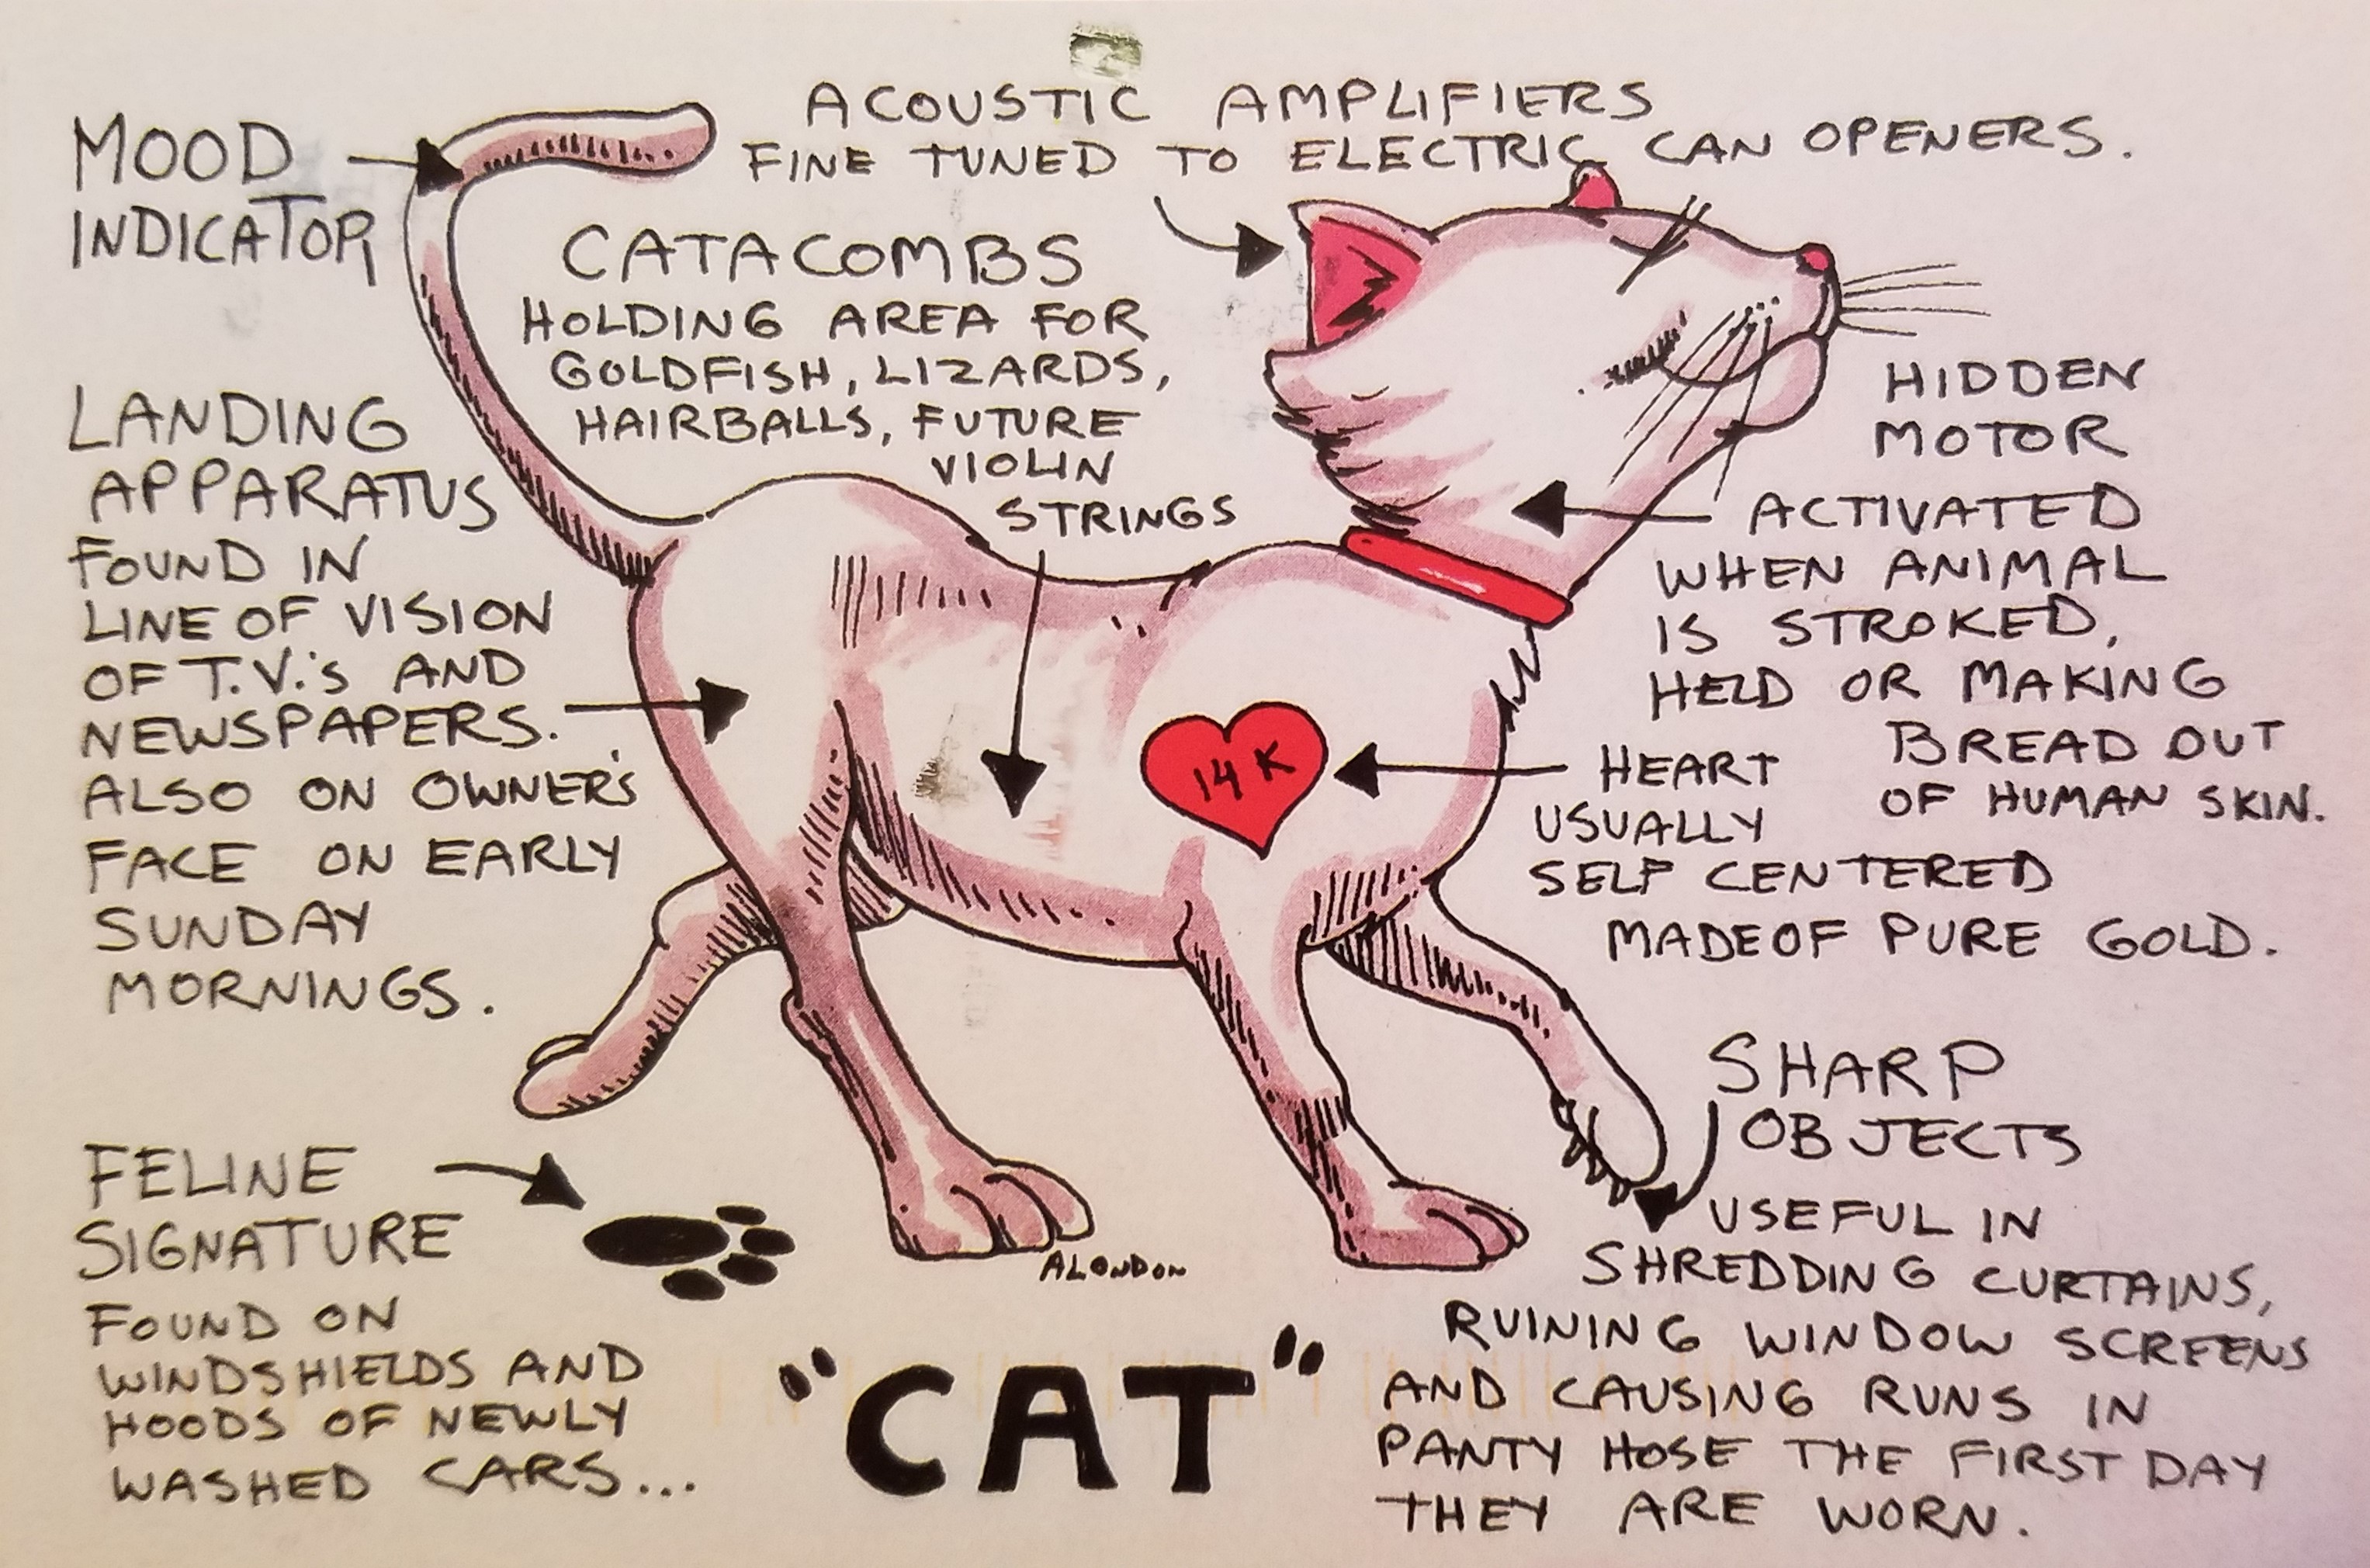 MOOD
INDICATOR
ACOUSTIC AMPLIFIERS
FINE TUNED TO ELECTRIC CAN OPENERS.
CATACOMBS
HOLDING AREA FOR
GOLDFISH, LIZARDS,
HAIRBALLS, FUTURE
VIOLIN
STRINGS
LANDING
APPARATUS
FOUND IN
LINE OF VISION
OF T.V.'s AND
NEWSPAPERS.
ALSO ON OWNER'S
FACE ON EARLY
SUNDAY
MORNINGS.
HIDDEN
MOTOR
ACTIVATED
WHEN ANIMAL
IS STROKED,
HELD OR MAKING
BREAD OUT
OF HUMAN SKIN.
14 K
HEART
USUALLY
SELF CENTERED
MADE OF PURE GOLD.
SHARP
OBJECTS
USEFUL IN
SHREDDING CURTAINS,
RUINING WINDOW SCREENS
AND CAUSING RUNS IN
PANTY HOSE THE FIRST DAY
THEY ARE WORN.
FELINE
SIGNATURE
FOUND ON
WINDSHIELDS AND
HOODS OF NEWLY
WASHED CARS...
ALONDON
"CAT"